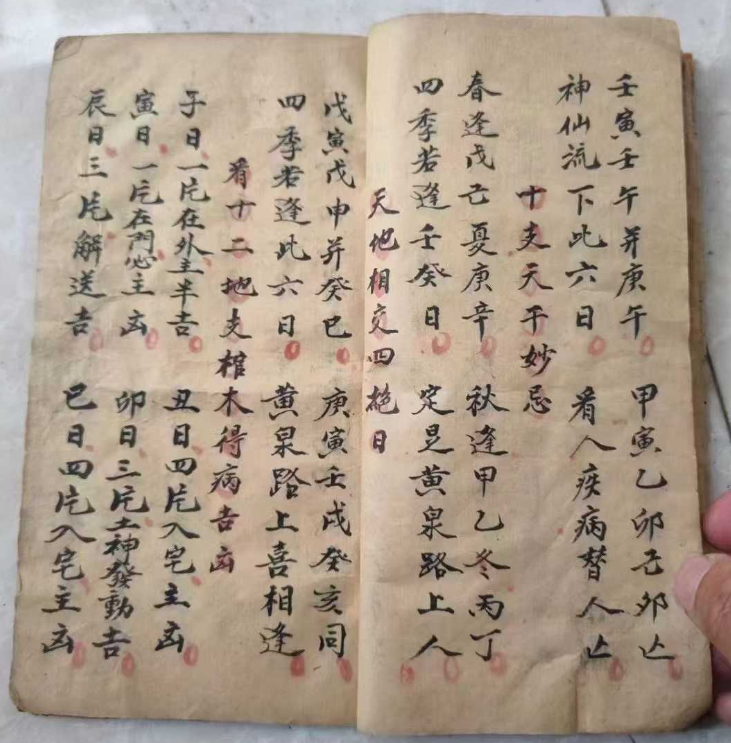 壬寅壬午并庚午 甲寅乙卯己卯亡
神仙流下此六日 看人疾病替人亡
十支天干妙忌
春逢戊己憂庚辛 秋逢甲乙冬丙丁
四季若逢壬癸日 定是黄泉路上人
天他相交四絶日
戊寅戊申并癸巳 庚寅壬戌癸亥同
四季若逢此六日 黄泉路上喜相逢
看十二地支棺木得病吉凶
子日一片在外主半吉 丑日四片入宅主凶
寅日一片在門心主凶 卯日三片土神發動吉
辰日三片解送吉 巳日四片入宅主凶